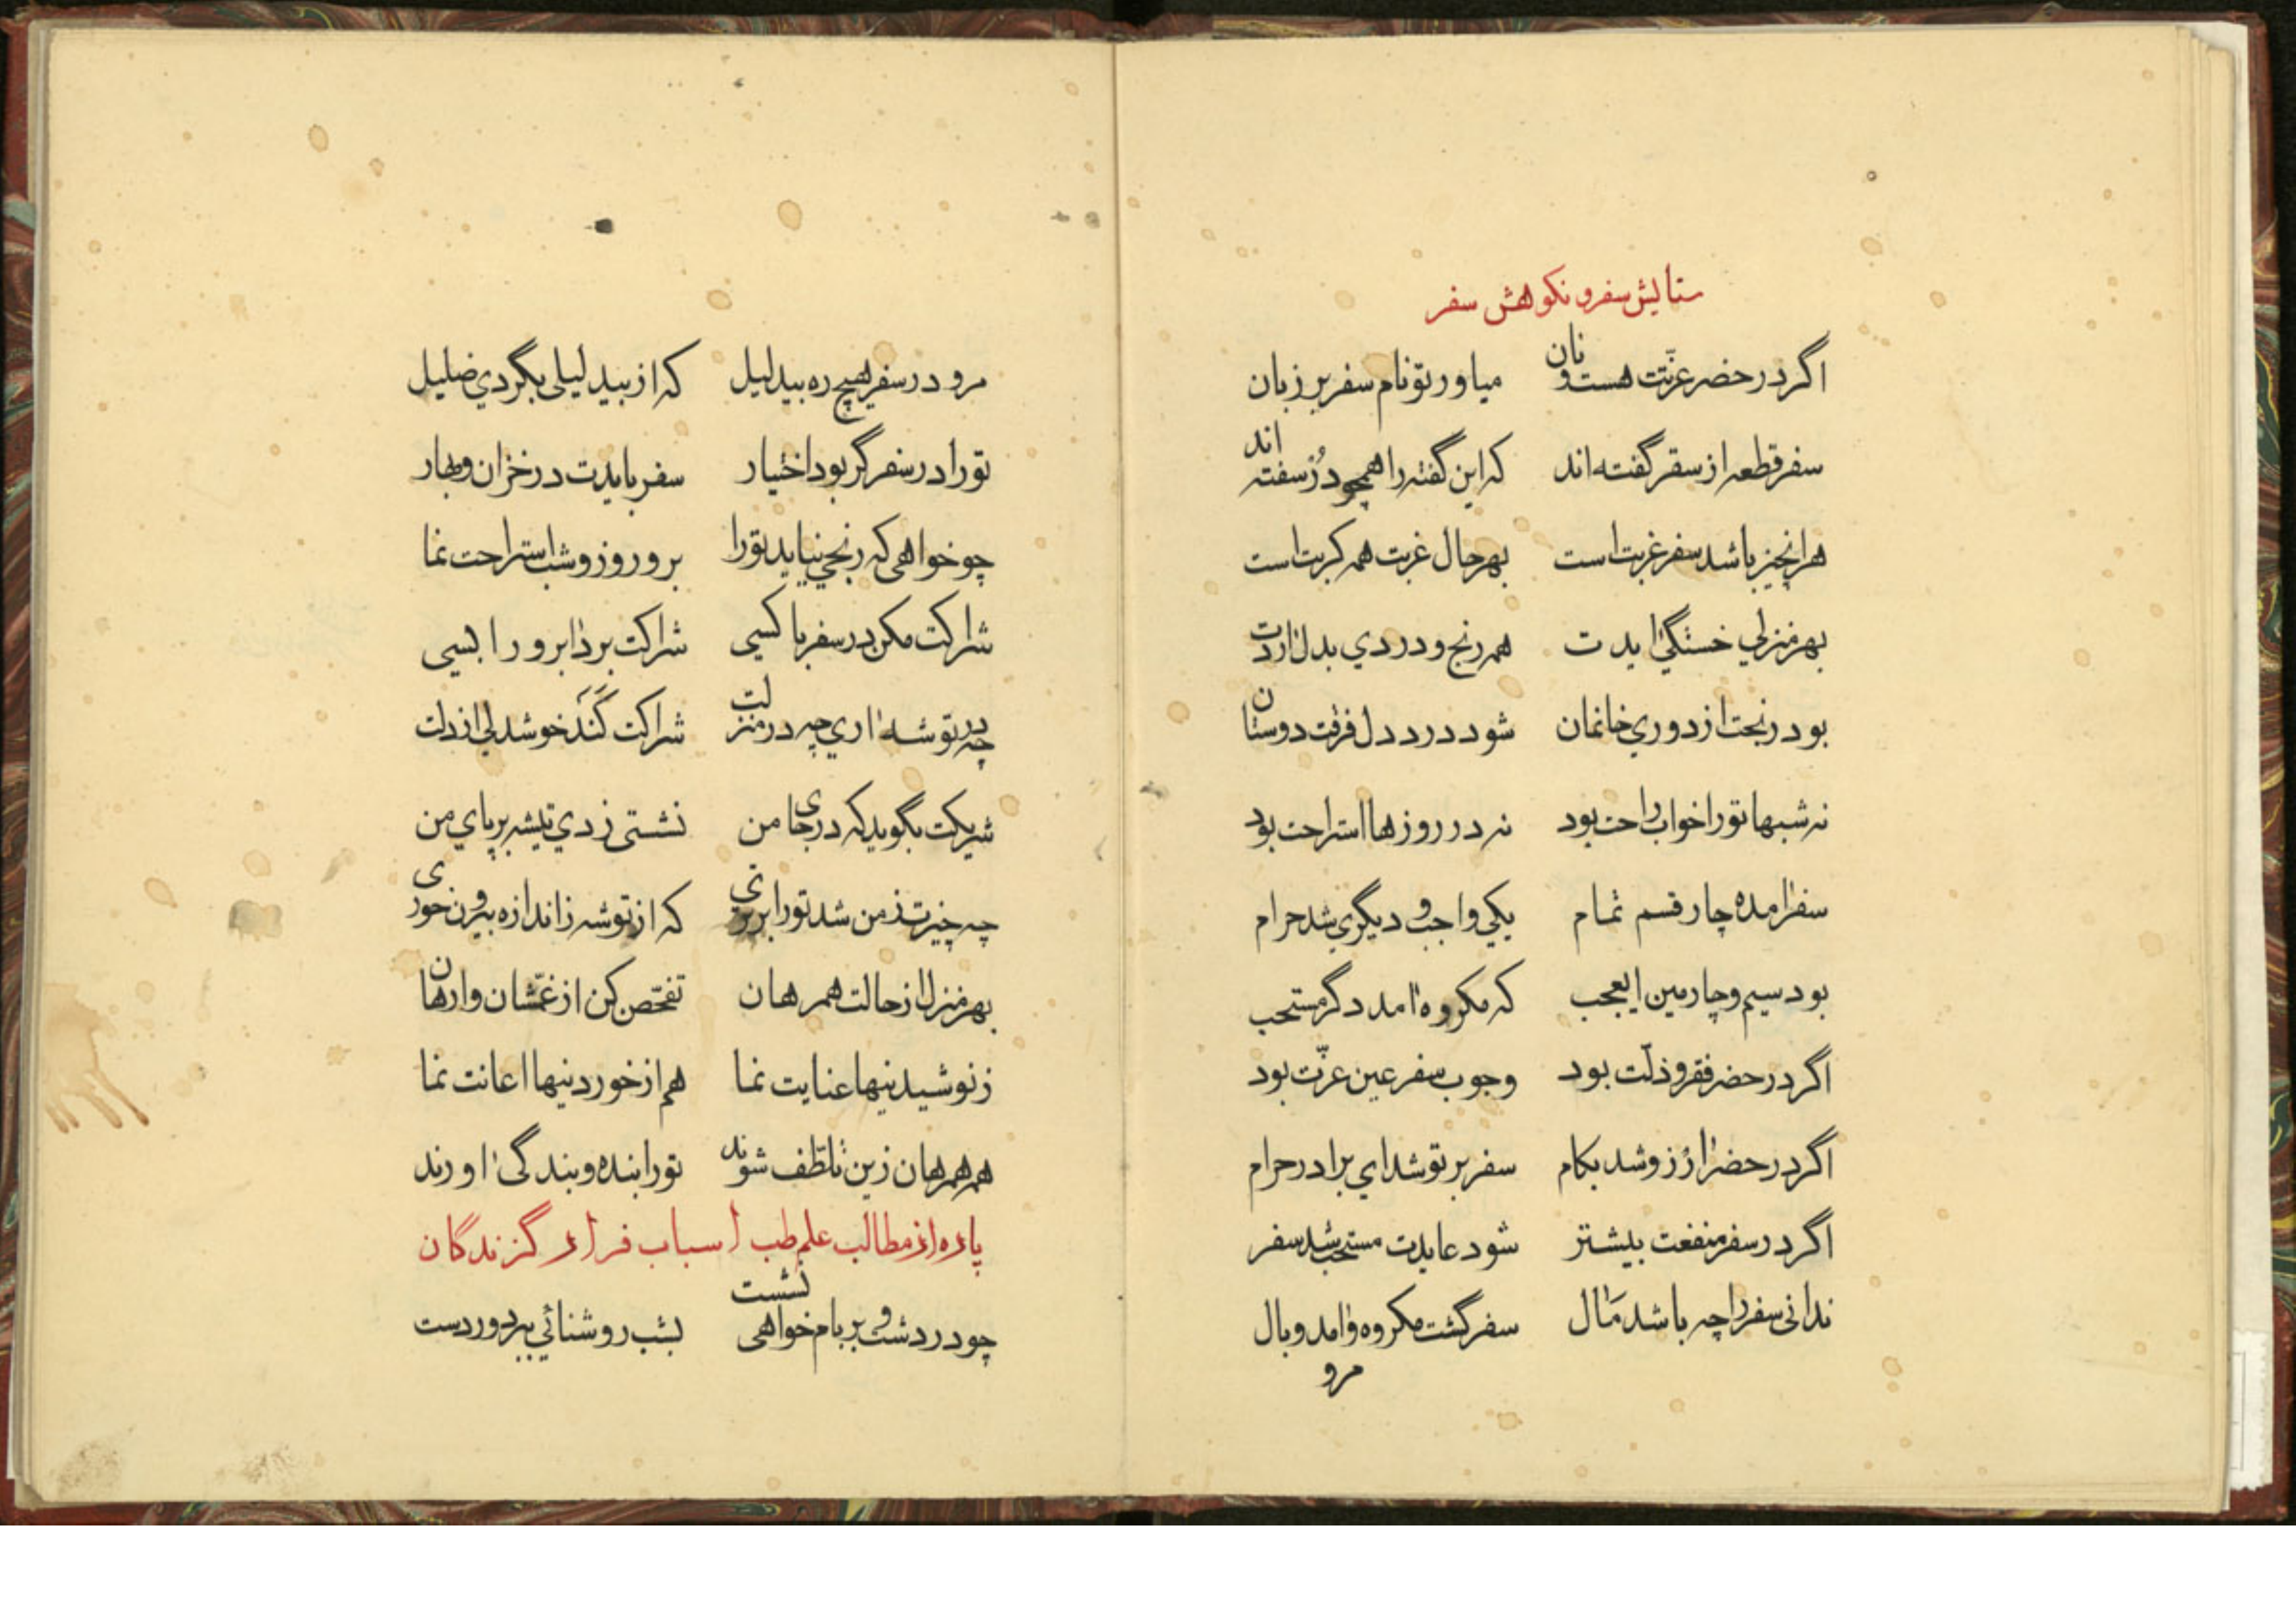 ستایش سفر و نکوهش سفر
اگر در حضر عزّتت هست و نان میاور تو نام سفر بر زبان
سفر قطعه از سقر گفته‌اند که این گفته را همچو دُرّ سفته‌اند
هرانچیز باشد سفر غربت است بهر حال غربت همه کربت است
بهر منزلي خستگي ایدت همه رنج و دردي بدل اردت
بود رنجت از دوري خانمان شود درد دل فرقت دوستان
نه شبها تورا خواب راحت بود نه در روزها استراحت بود
سفر امده چار قسم تمام یکي واجب و دیگري شد حرام
بود سیم و چارمین ایعجب که مکروه امد دگر مستحب
اگر در حضر فقر و ذلّت بود وجوب سفر عین عزّت بود
اگر در حضر ارزو شد بکام سفر بر تو شد اي برادر حرام
اگر در سفر منفعت بیشتر شود عایدت مستحب شد سفر
ندانی سفر را چه باشد مَال سفر گشت مکروه و امد وبال
مرو
مرو در سفر هیچ ره بیدلیل که از بیدلیلی بگردي ضلیل
تورا در سفر گر بود اختیار سفر بایدت در خزان و بهار
چو خواهی که رنجي نیاید تورا برو روز و شب استراحت نما
شراکت مکن در سفر با کسي شراکت برد ابرو را بسی
چه در توشه اري چه در منزلت شراکت کَنَد خوشدلي از دلت
شریکت بگوید که در جای من نشستی زدي تیشه بر پاي من
چه چیزت ز من شد تورا برتري که از توشه ز اندازه بیرون خوری
بهر منزل از حالت همرهان تفحّص کن از غمّشان وارهان
ز نوشیدنیها عنایت نما هم از خوردنیها اعانت نما
همه همرهان زین تلطّف شوند تورا بنده و بندگی اورند
پاره از مطالب علم طب اسباب فرار گزندگان
چو در دشت و بر بام خواهی نشست بشب روشنائي ببر دوردست